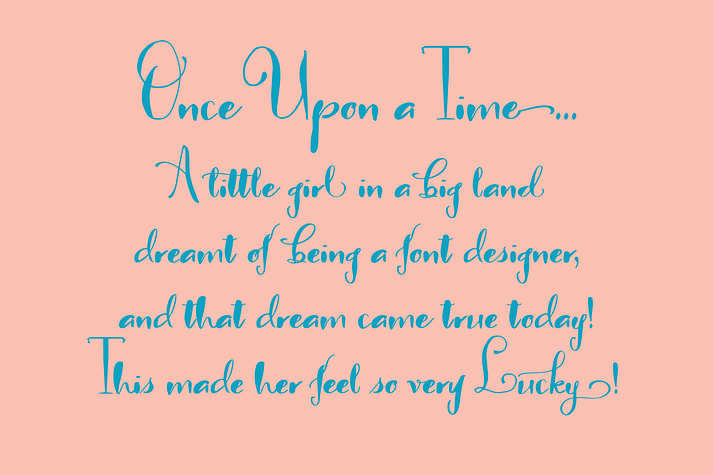 Once Upon a Time...
A tittle girl in a big land
dreamt of being a font designer,
and that dream came true today!
This made her feel so very Lucky!